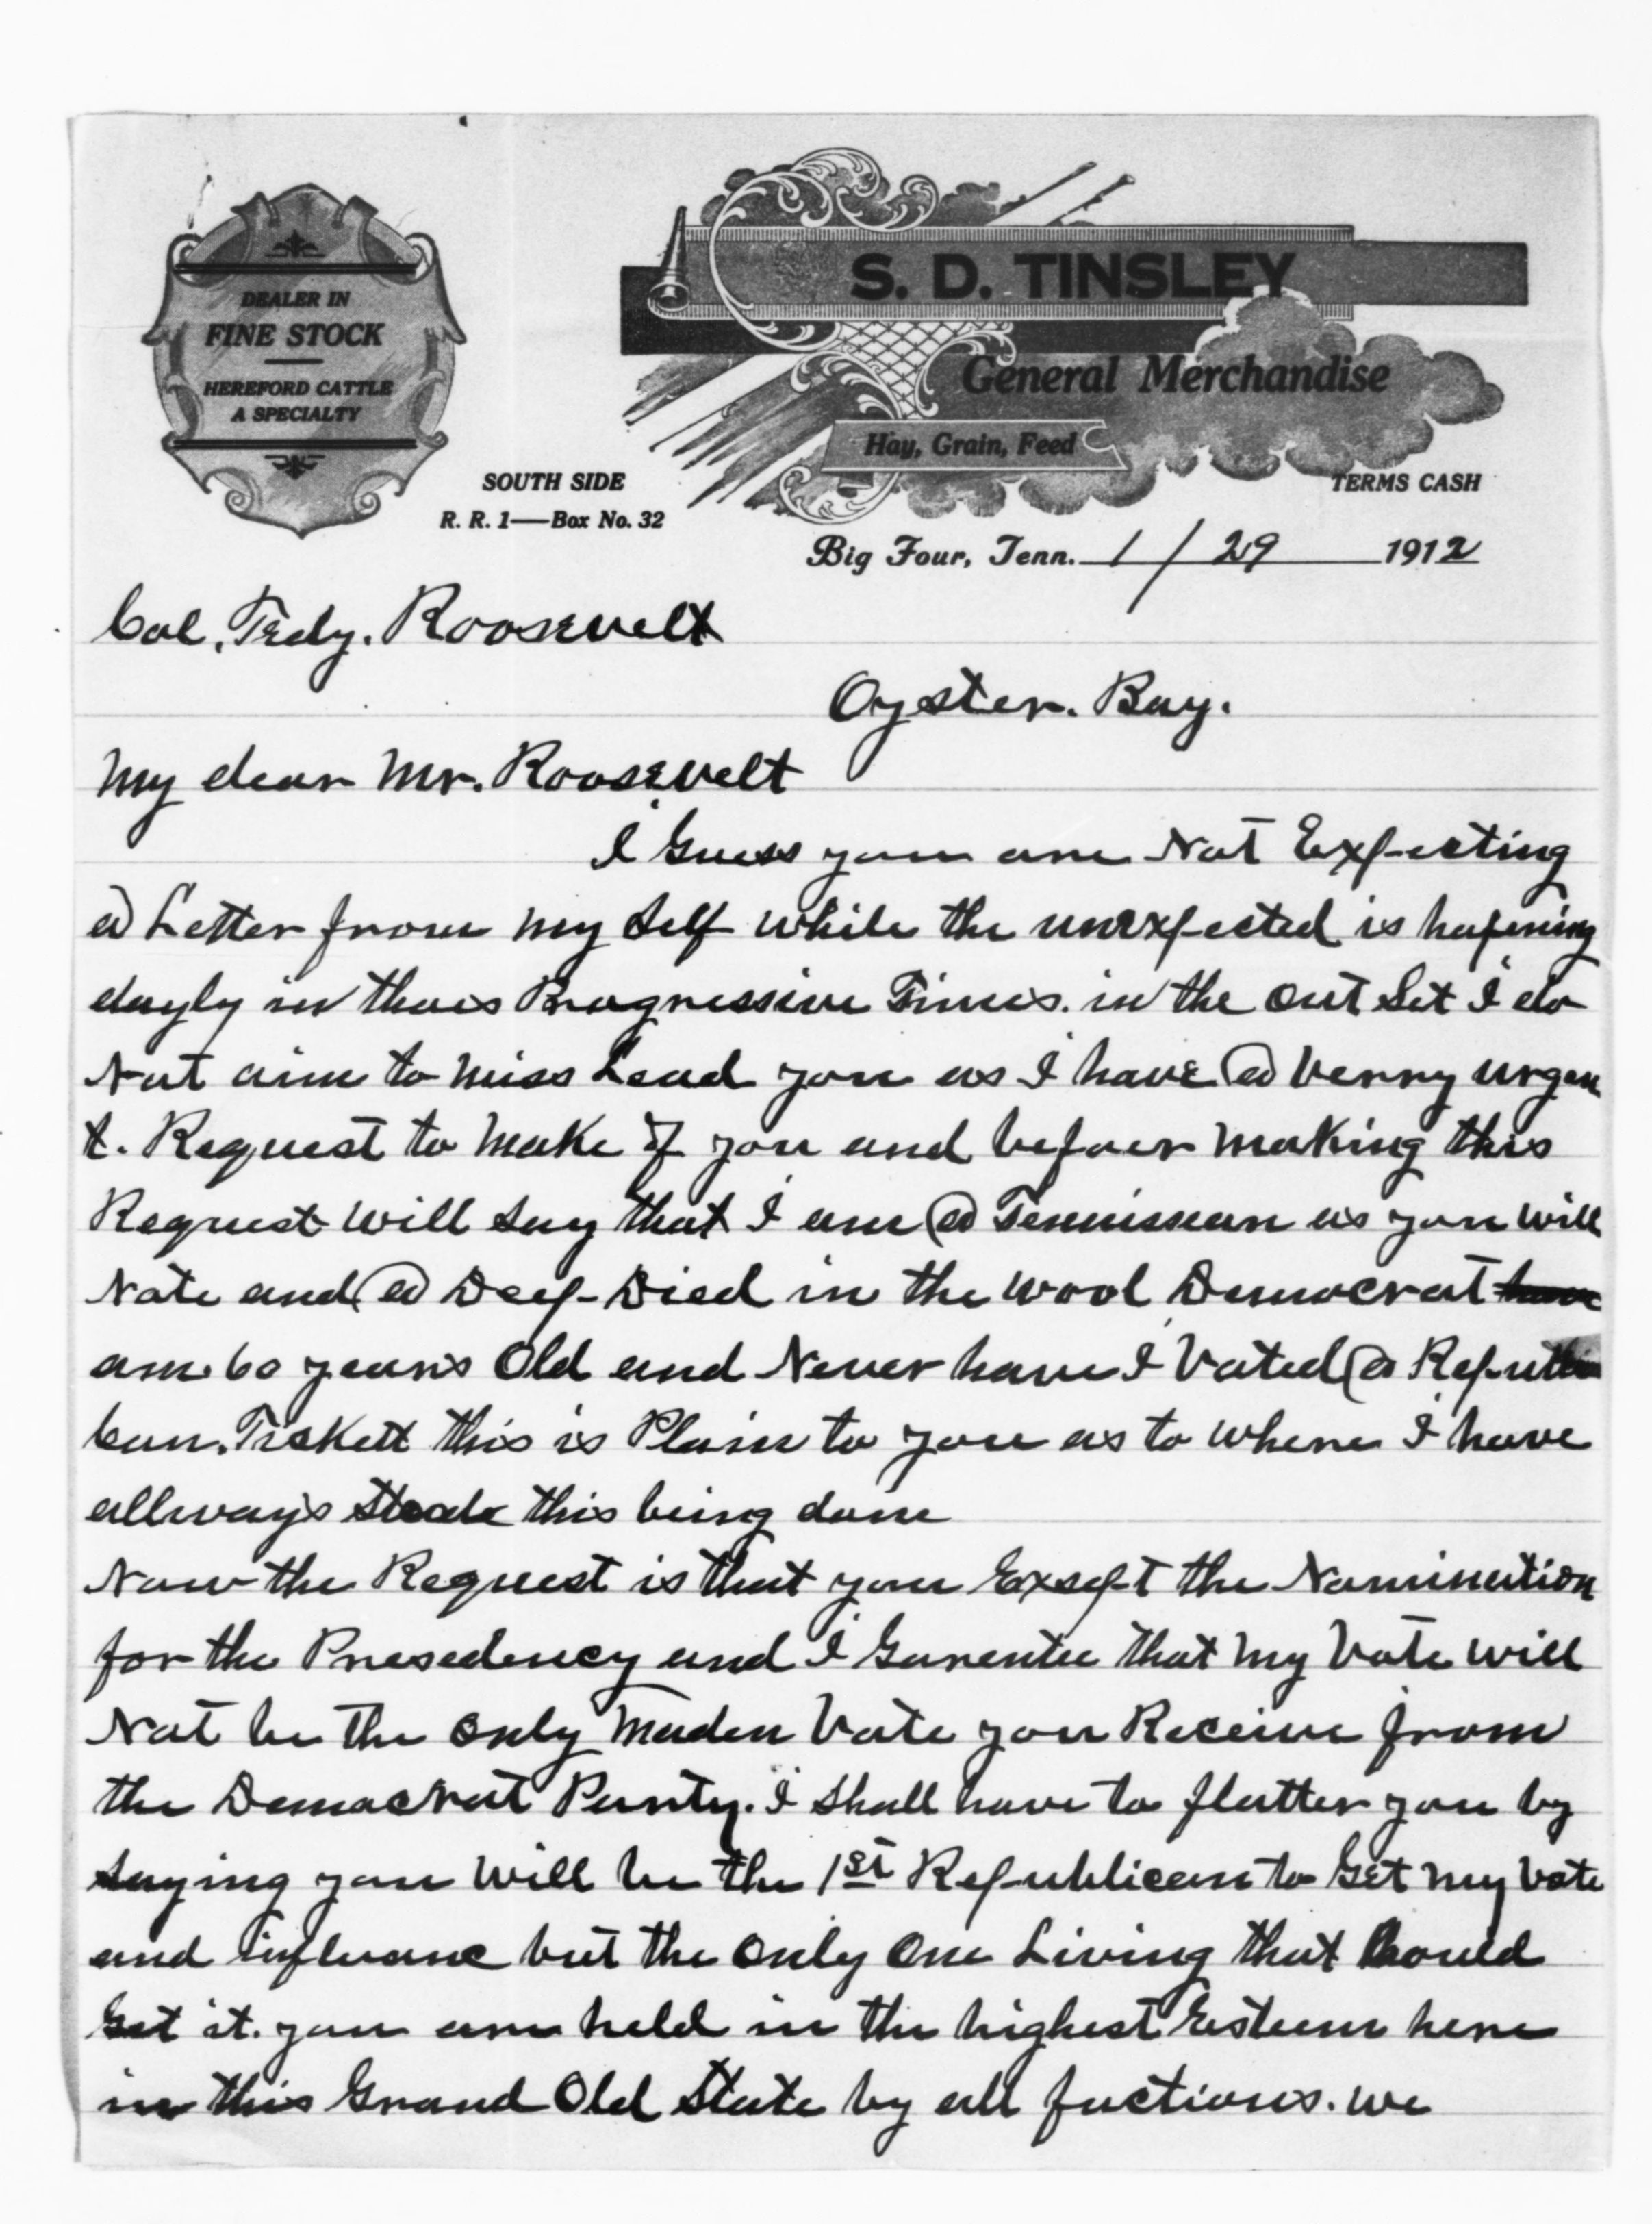 DEALER IN
FINE STOCK
HEREFORD CATTLE
A SPECIALTY
S. D. TINSLEY
General Merchandise
Hay, Grain, Feed
SOUTH SIDE
R. R. 1—Box No. 32
TERMS CASH
Big Four, Tenn. 1/29 1912
Col. Tedy. Roosevelt
Oyster. Bay.
My dear Mr. Roosevelt
I Guess you are Not Expecting
a Letter from my Self while the unexpected is hapening
dayly in thees Progressive Times. in the Out Set I do
Not aim to miss Lead you as I have a verry urgen
t. Request to make of you and befoer making this
Request will Say that I am a Tennissean as you will
Note and a Deep-Died in the wool Democrat
am 60 years Old and Never have I Voted a Republi
can. Tickett this is Plain to you as to where I have
allways stode this being done
Now the Request is that you Exsept the Nomination
for the Presedency and I Garentee that my Vote will
Not be the Only Maden Vote you Receive from
the Democrat Party. I shall have to flatter you by
saying you will be the 1st Republican to Get my vote
and influanc but the Only One Living that Could
Get it. you are held in the highest Esteem here
in this Grand Old State by all factions. we